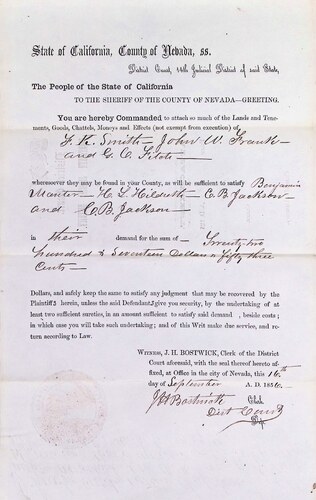 State of California, County of Nevada, ss.
District Court, 14th Judicial District of said State,
The People of the State of California
TO THE SHERIFF OF THE COUNTY OF NEVADA—GREETING.
You are hereby Commanded to attach so much of the Lands and Tene-
ments, Goods, Chattels, Moneys and Effects (not exempt from execution) of
J. K. Smith — John W. Frank —
and G. C.
wheresoever they may be found in your County, as will be sufficient to satisfy Benjamin
H. L. Hildreth — C. B. Jackson
and C. B. Jackson
in their demand for the sum of — Twenty two
hundred & Seventeen Dollars & fifty three
Cents —
Dollars, and safely keep the same to satisfy any judgment that may be recovered by the
Plaintiffs herein, unless the said Defendants give you security, by the undertaking of at
least two sufficient sureties, in an amount sufficient to satisfy said demand, beside costs;
in which case you will take such undertaking; and of this Writ make due service, and re-
turn according to Law.
WITNESS, J. H. BOSTWICK, Clerk of the District
Court aforesaid, with the seal thereof hereto af-
fixed, at Office in the city of Nevada, this 16th
day of September A. D. 1856.
J H Bostwick Clerk
Dist Court